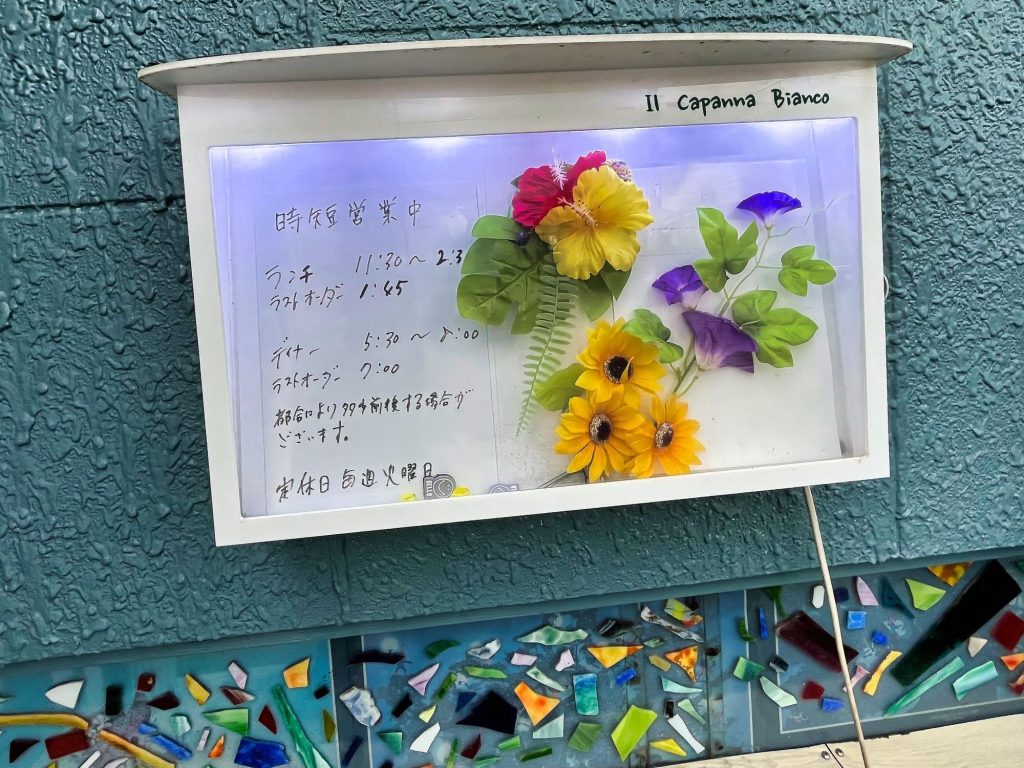 Il Capanna Bianco
時短営業中
ランチ 11:30～2:3
ラストオーダー 1:45
ディナー 5:30～8:00
ラストオーダー 7:00
都合により多少前後する場合が
ございます。
定休日毎週火曜日
HELLO